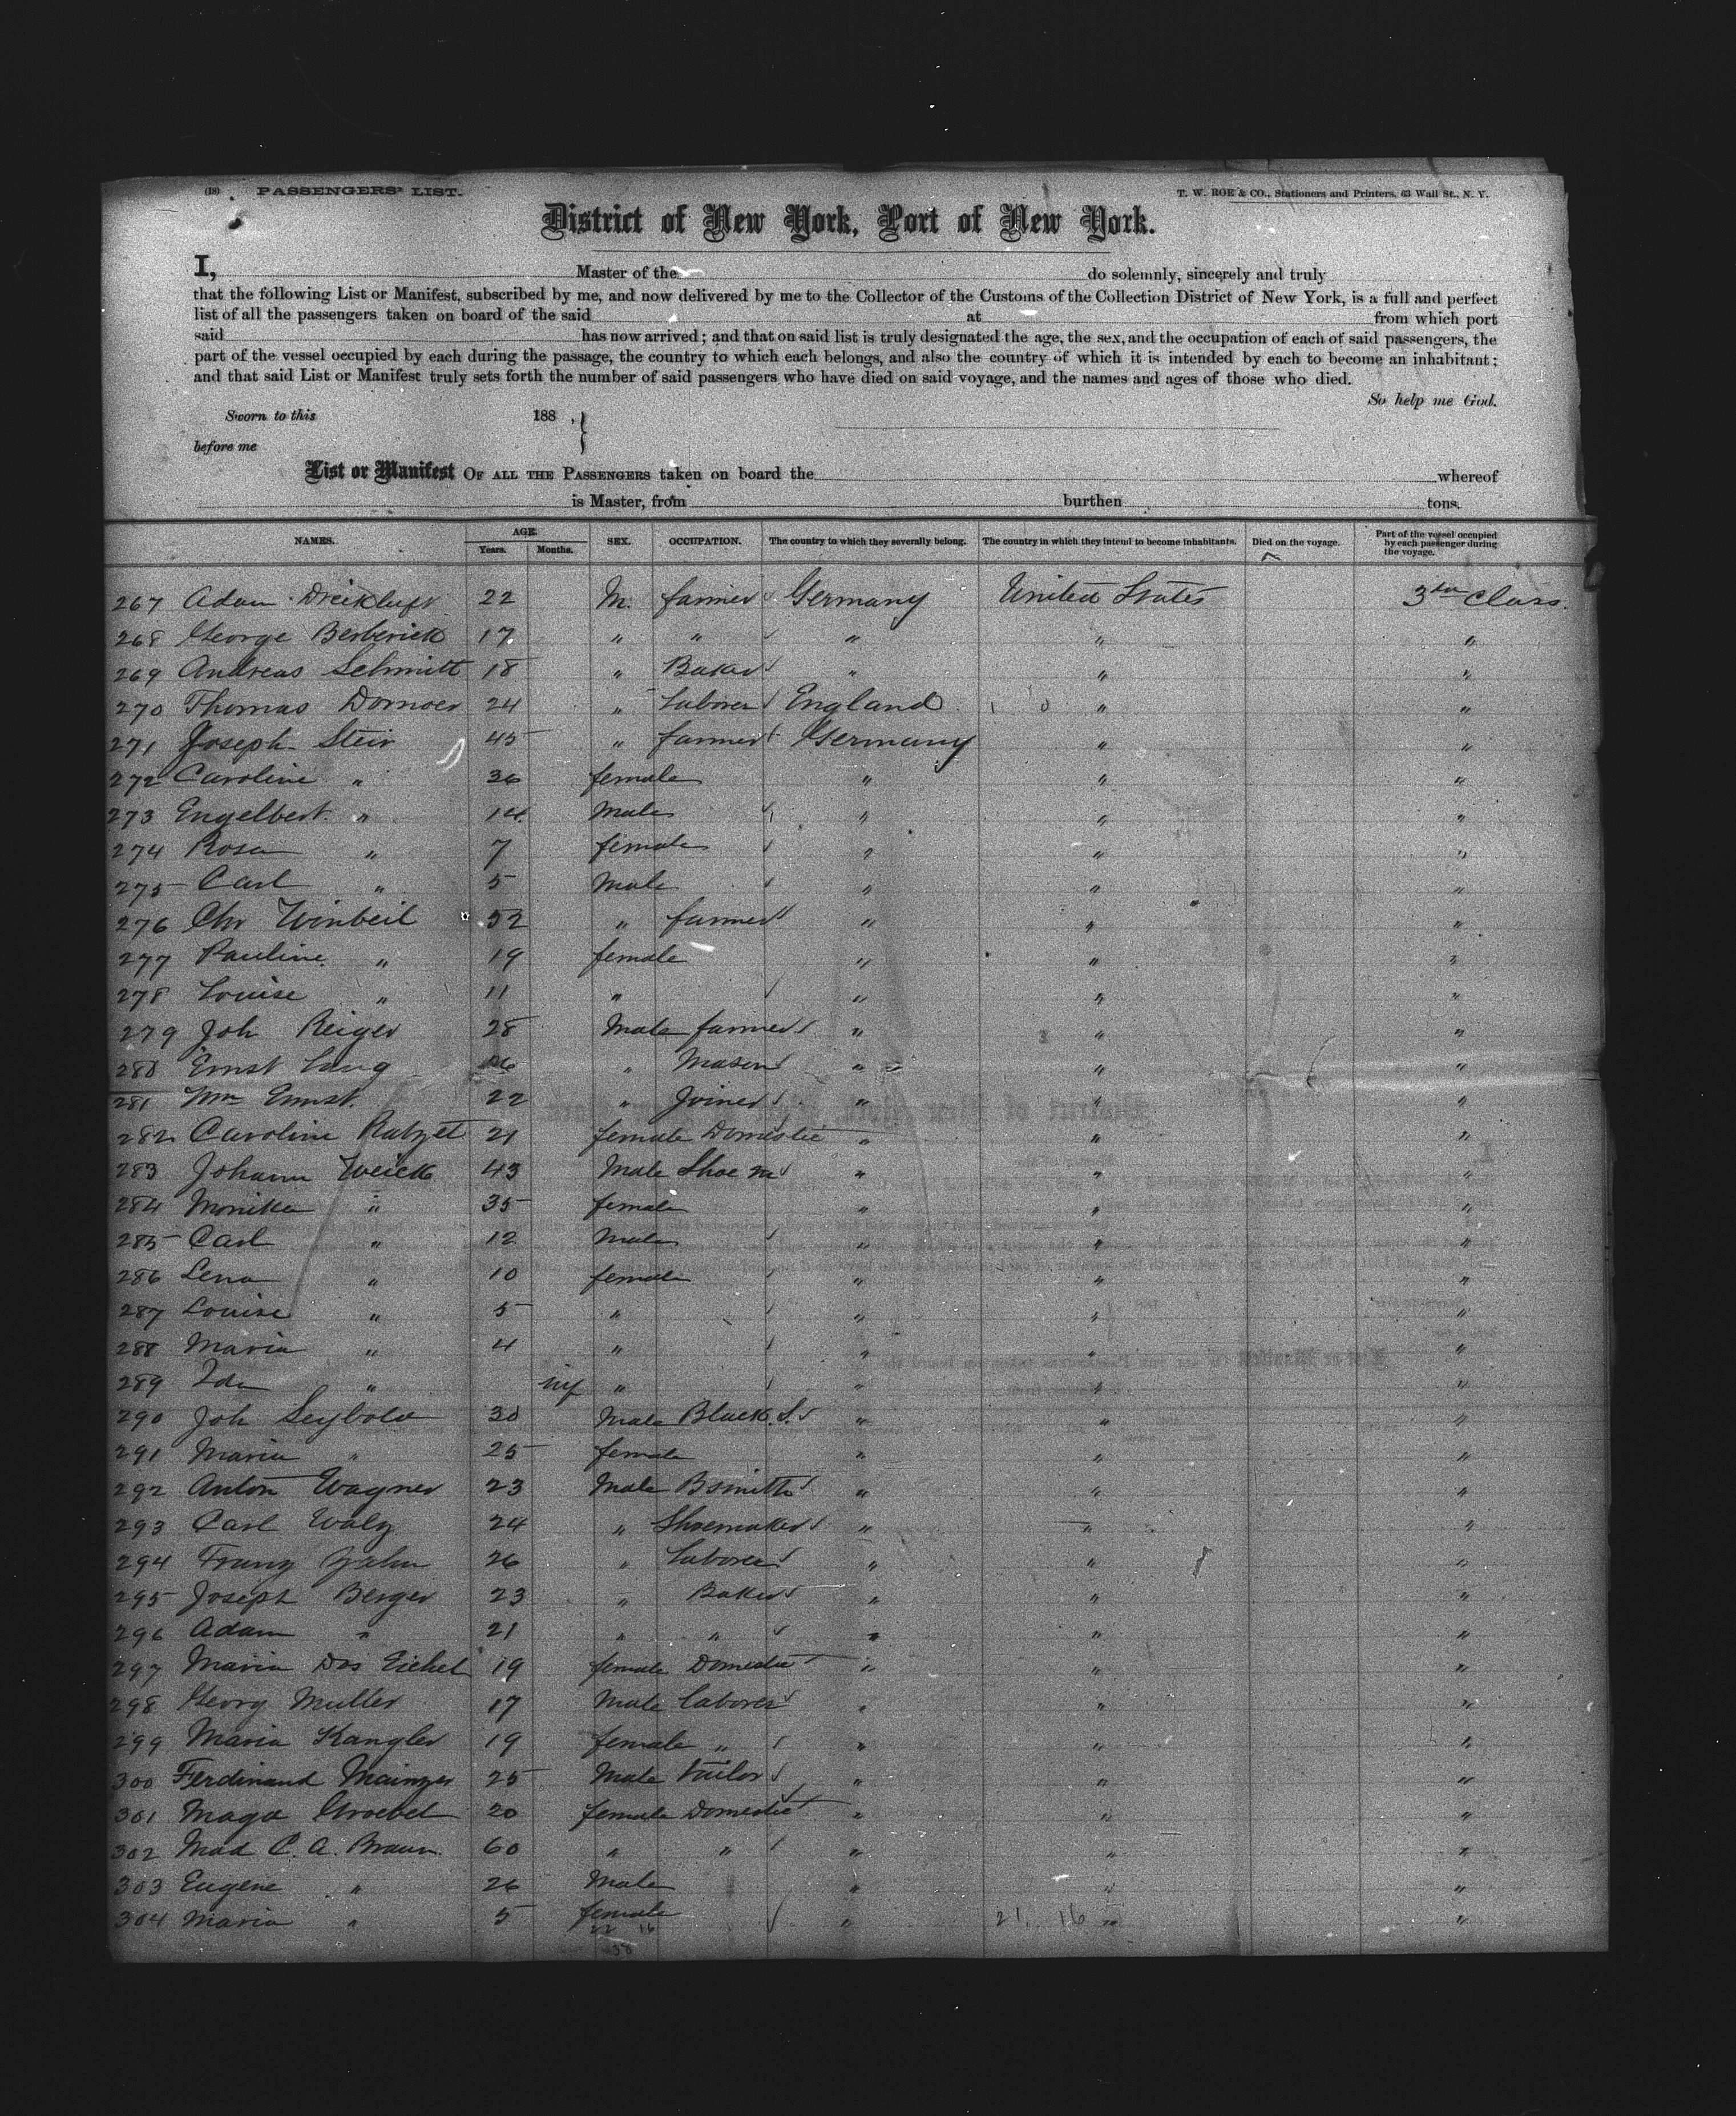 (18) PASSENGERS' LIST. T. W. ROE & CO., Stationers and Printers, 63 Wall St., N. Y.
District of New York, Port of New York.
I, Master of the do solemnly, sincerely and truly
that the following List or Manifest, subscribed by me, and now delivered by me to the Collector of the Customs of the Collection District of New York, is a full and perfect
list of all the passengers taken on board of the said at from which port
said has now arrived; and that on said list is truly designated the age, the sex, and the occupation of each of said passengers, the
part of the vessel occupied by each during the passage, the country to which each belongs, and also the country of which it is intended by each to become an inhabitant;
and that said List or Manifest truly sets forth the number of said passengers who have died on said voyage, and the names and ages of those who died.
So help me God.
Sworn to this 188 .
before me
List or Manifest OF ALL THE PASSENGERS taken on board the whereof
is Master, from burthen tons.
NAMES. AGE. Years. Months. SEX. OCCUPATION. The country to which they severally belong. The country in which they intend to become inhabitants. Died on the voyage. Part of the vessel occupied by each passenger during the voyage.
267 Adam 22 M. farmer Germany United States 3 class.
268 George Berberick 17 " " " " "
269 Andreas Schmitt 18 " Baker " " "
270 Thomas 24 " Laborer England " "
271 Joseph Stein 45 " farmer Germany " "
272 Caroline " 36 female " " "
273 Engelbert " 14 Male " " "
274 Rosa " 7 female " " "
275 Carl " 5 Male " " "
276 Chr Winbeil 52 " farmer " " "
277 Pauline " 19 female " " "
278 Louise " 11 " " " "
279 Joh Reiger 28 Male farmer " " "
280 Ernst Lang " Mason " " "
281 Wm Ernst. 22 " Joiner " " "
282 Caroline Ratzel 21 female Domestic " " "
283 Johann Weick 43 Male Shoe m " " "
284 Monika " 35 female " " "
285 Carl " 12 Male " " "
286 Lena " 10 female " " "
287 Louise " 5 " " " "
288 Maria " 4 " " " "
289 Ida " inf " " " "
290 Joh Seybold 30 Male Black. S. " " "
291 Maria " 25 female " " "
292 Anton Wagner 23 Male Bsmith " " "
293 Carl Walz 24 " Shoemaker " " "
294 Franz Jahn 26 " Laborer " " "
295 Joseph Berger 23 " Baker " " "
296 Adam " 21 " " " " "
297 Maria Dos Eickel 19 female Domestic " " "
298 Georg Muller 17 Male laborer " " "
299 Maria Kangler 19 female " " " "
300 Ferdinand Mainzer 25 Male tailor " " "
301 Maga Stroebel 20 female Domestic " " "
302 Mad C. A. Braun 60 " " " " "
303 Eugene " 26 Male " " "
304 Maria " 5 female " 21. 16 " "
22 16
38